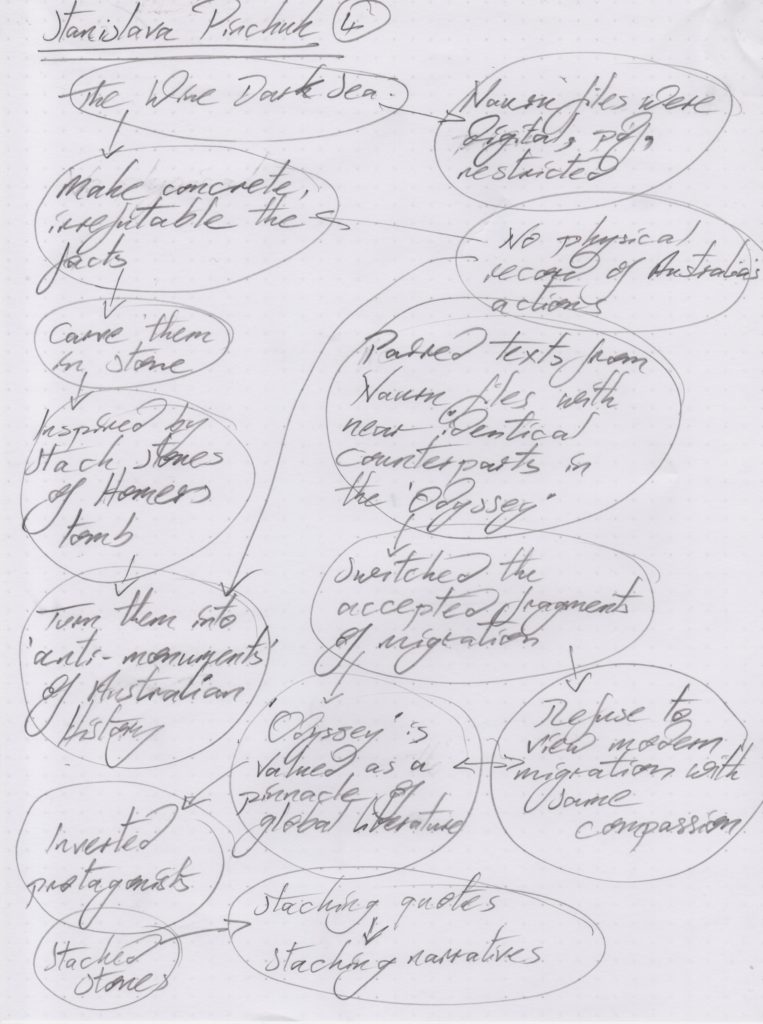 Stanislava Pinchuk 4
The Wine Dark Sea.
Nauru files were
digital, pdf,
restricted
Make concrete,
irrefutable the
facts
No physical
record of Australia's
actions
Carve them
in stone
Paired texts from
Nauru files with
near identical
counterparts in
the 'Odyssey'
Inspired by
stack stones
of Homers
tomb
Switched the
accepted fragments
of migration
Turn them into
'anti-monuments'
of Australian
History
'Odyssey' is
valued as a
pinnacle of
global literature
Refuse to
view modern
migration with
same
compassion
Inverted
protagonists
Stacked
stones
Stacking quotes
Stacking narratives